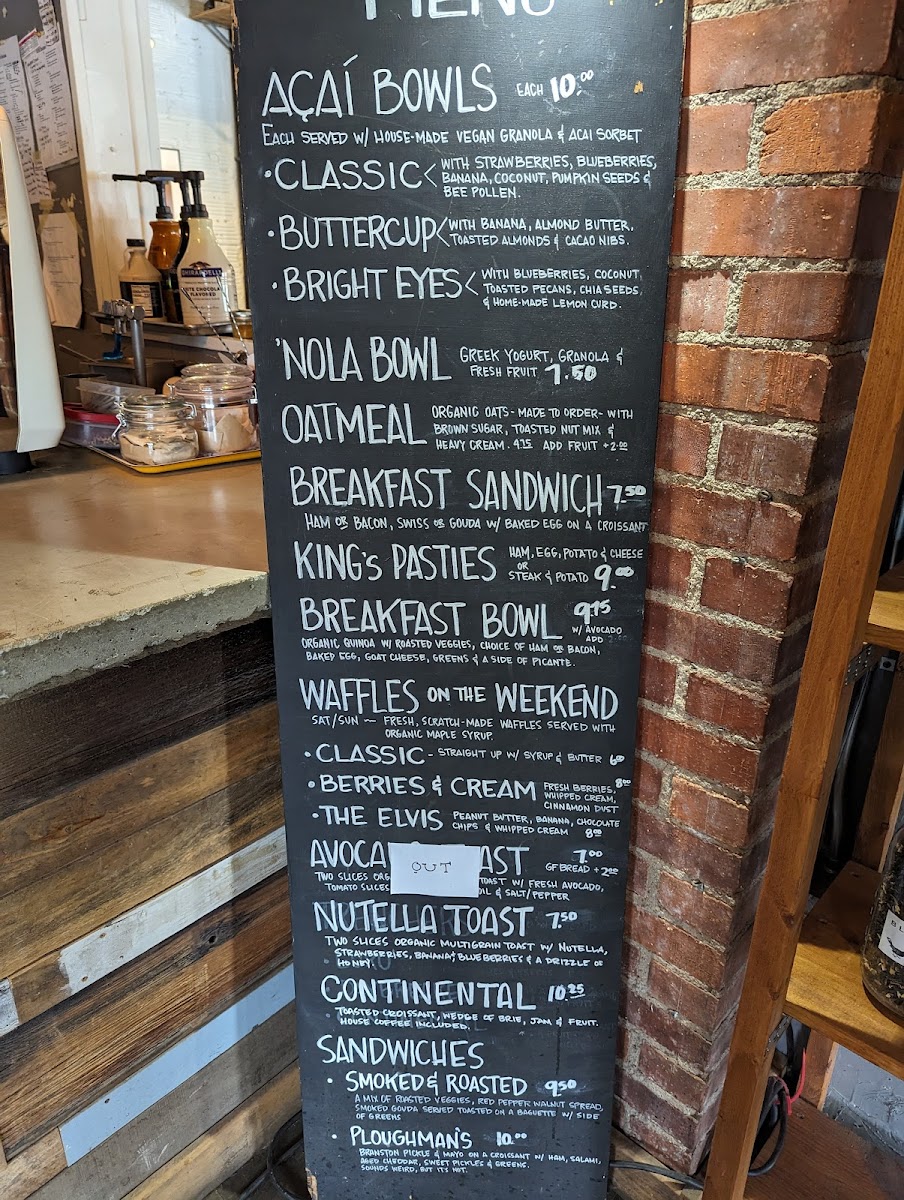 MENU
AÇAÍ BOWLS EACH 10.00
EACH SERVED W/ HOUSE-MADE VEGAN GRANOLA & ACAI SORBET
• CLASSIC < WITH STRAWBERRIES, BLUEBERRIES,
BANANA, COCONUT, PUMPKIN SEEDS &
BEE POLLEN.
• BUTTERCUP < WITH BANANA, ALMOND BUTTER,
TOASTED ALMONDS & CACAO NIBS.
• BRIGHT EYES < WITH BLUEBERRIES, COCONUT,
TOASTED PECANS, CHIA SEEDS,
& HOME-MADE LEMON CURD.
'NOLA BOWL GREEK YOGURT, GRANOLA &
FRESH FRUIT 7.50
OATMEAL ORGANIC OATS - MADE TO ORDER - WITH
BROWN SUGAR, TOASTED NUT MIX &
HEAVY CREAM. 4.75 ADD FRUIT +2.00
BREAKFAST SANDWICH 7.50
HAM OR BACON, SWISS OR GOUDA W/ BAKED EGG ON A CROISSANT
KING'S PASTIES HAM, EGG, POTATO & CHEESE
OR
STEAK & POTATO 9.00
BREAKFAST BOWL 9.75
W/ AVOCADO
ADD
ORGANIC QUINOA W/ ROASTED VEGGIES, CHOICE OF HAM OR BACON,
BAKED EGG, GOAT CHEESE, GREENS & A SIDE OF PICANTE.
WAFFLES ON THE WEEKEND
SAT/SUN ~ FRESH, SCRATCH-MADE WAFFLES SERVED WITH
ORGANIC MAPLE SYRUP.
• CLASSIC - STRAIGHT UP W/ SYRUP & BUTTER 6.00
• BERRIES & CREAM FRESH BERRIES, 8.00
WHIPPED CREAM,
CINNAMON DUST
• THE ELVIS PEANUT BUTTER, BANANA, CHOCOLATE
CHIPS & WHIPPED CREAM 8.00
AVOCA OUT AST 7.00
GF BREAD +2.00
TWO SLICES ORG TOAST W/ FRESH AVOCADO,
TOMATO SLICES OIL & SALT/PEPPER
NUTELLA TOAST 7.50
TWO SLICES ORGANIC MULTIGRAIN TOAST W/ NUTELLA,
STRAWBERRIES, BANANA & BLUEBERRIES & A DRIZZLE OF
HONEY.
CONTINENTAL 10.25
TOASTED CROISSANT, WEDGE OF BRIE, JAM & FRUIT.
HOUSE COFFEE INCLUDED.
SANDWICHES
• SMOKED & ROASTED 9.50
A MIX OF ROASTED VEGGIES, RED PEPPER WALNUT SPREAD,
SMOKED GOUDA SERVED TOASTED ON A BAGUETTE W/ SIDE
OF GREENS
• PLOUGHMAN'S 10.00
BRANSTON PICKLE & MAYO ON A CROISSANT W/ HAM, SALAMI,
AGED CHEDDAR, SWEET PICKLES & GREENS.
SOUNDS WEIRD, BUT IT'S NOT.
GHIRARDELLI
WHITE CHOCOLATE
FLAVORED